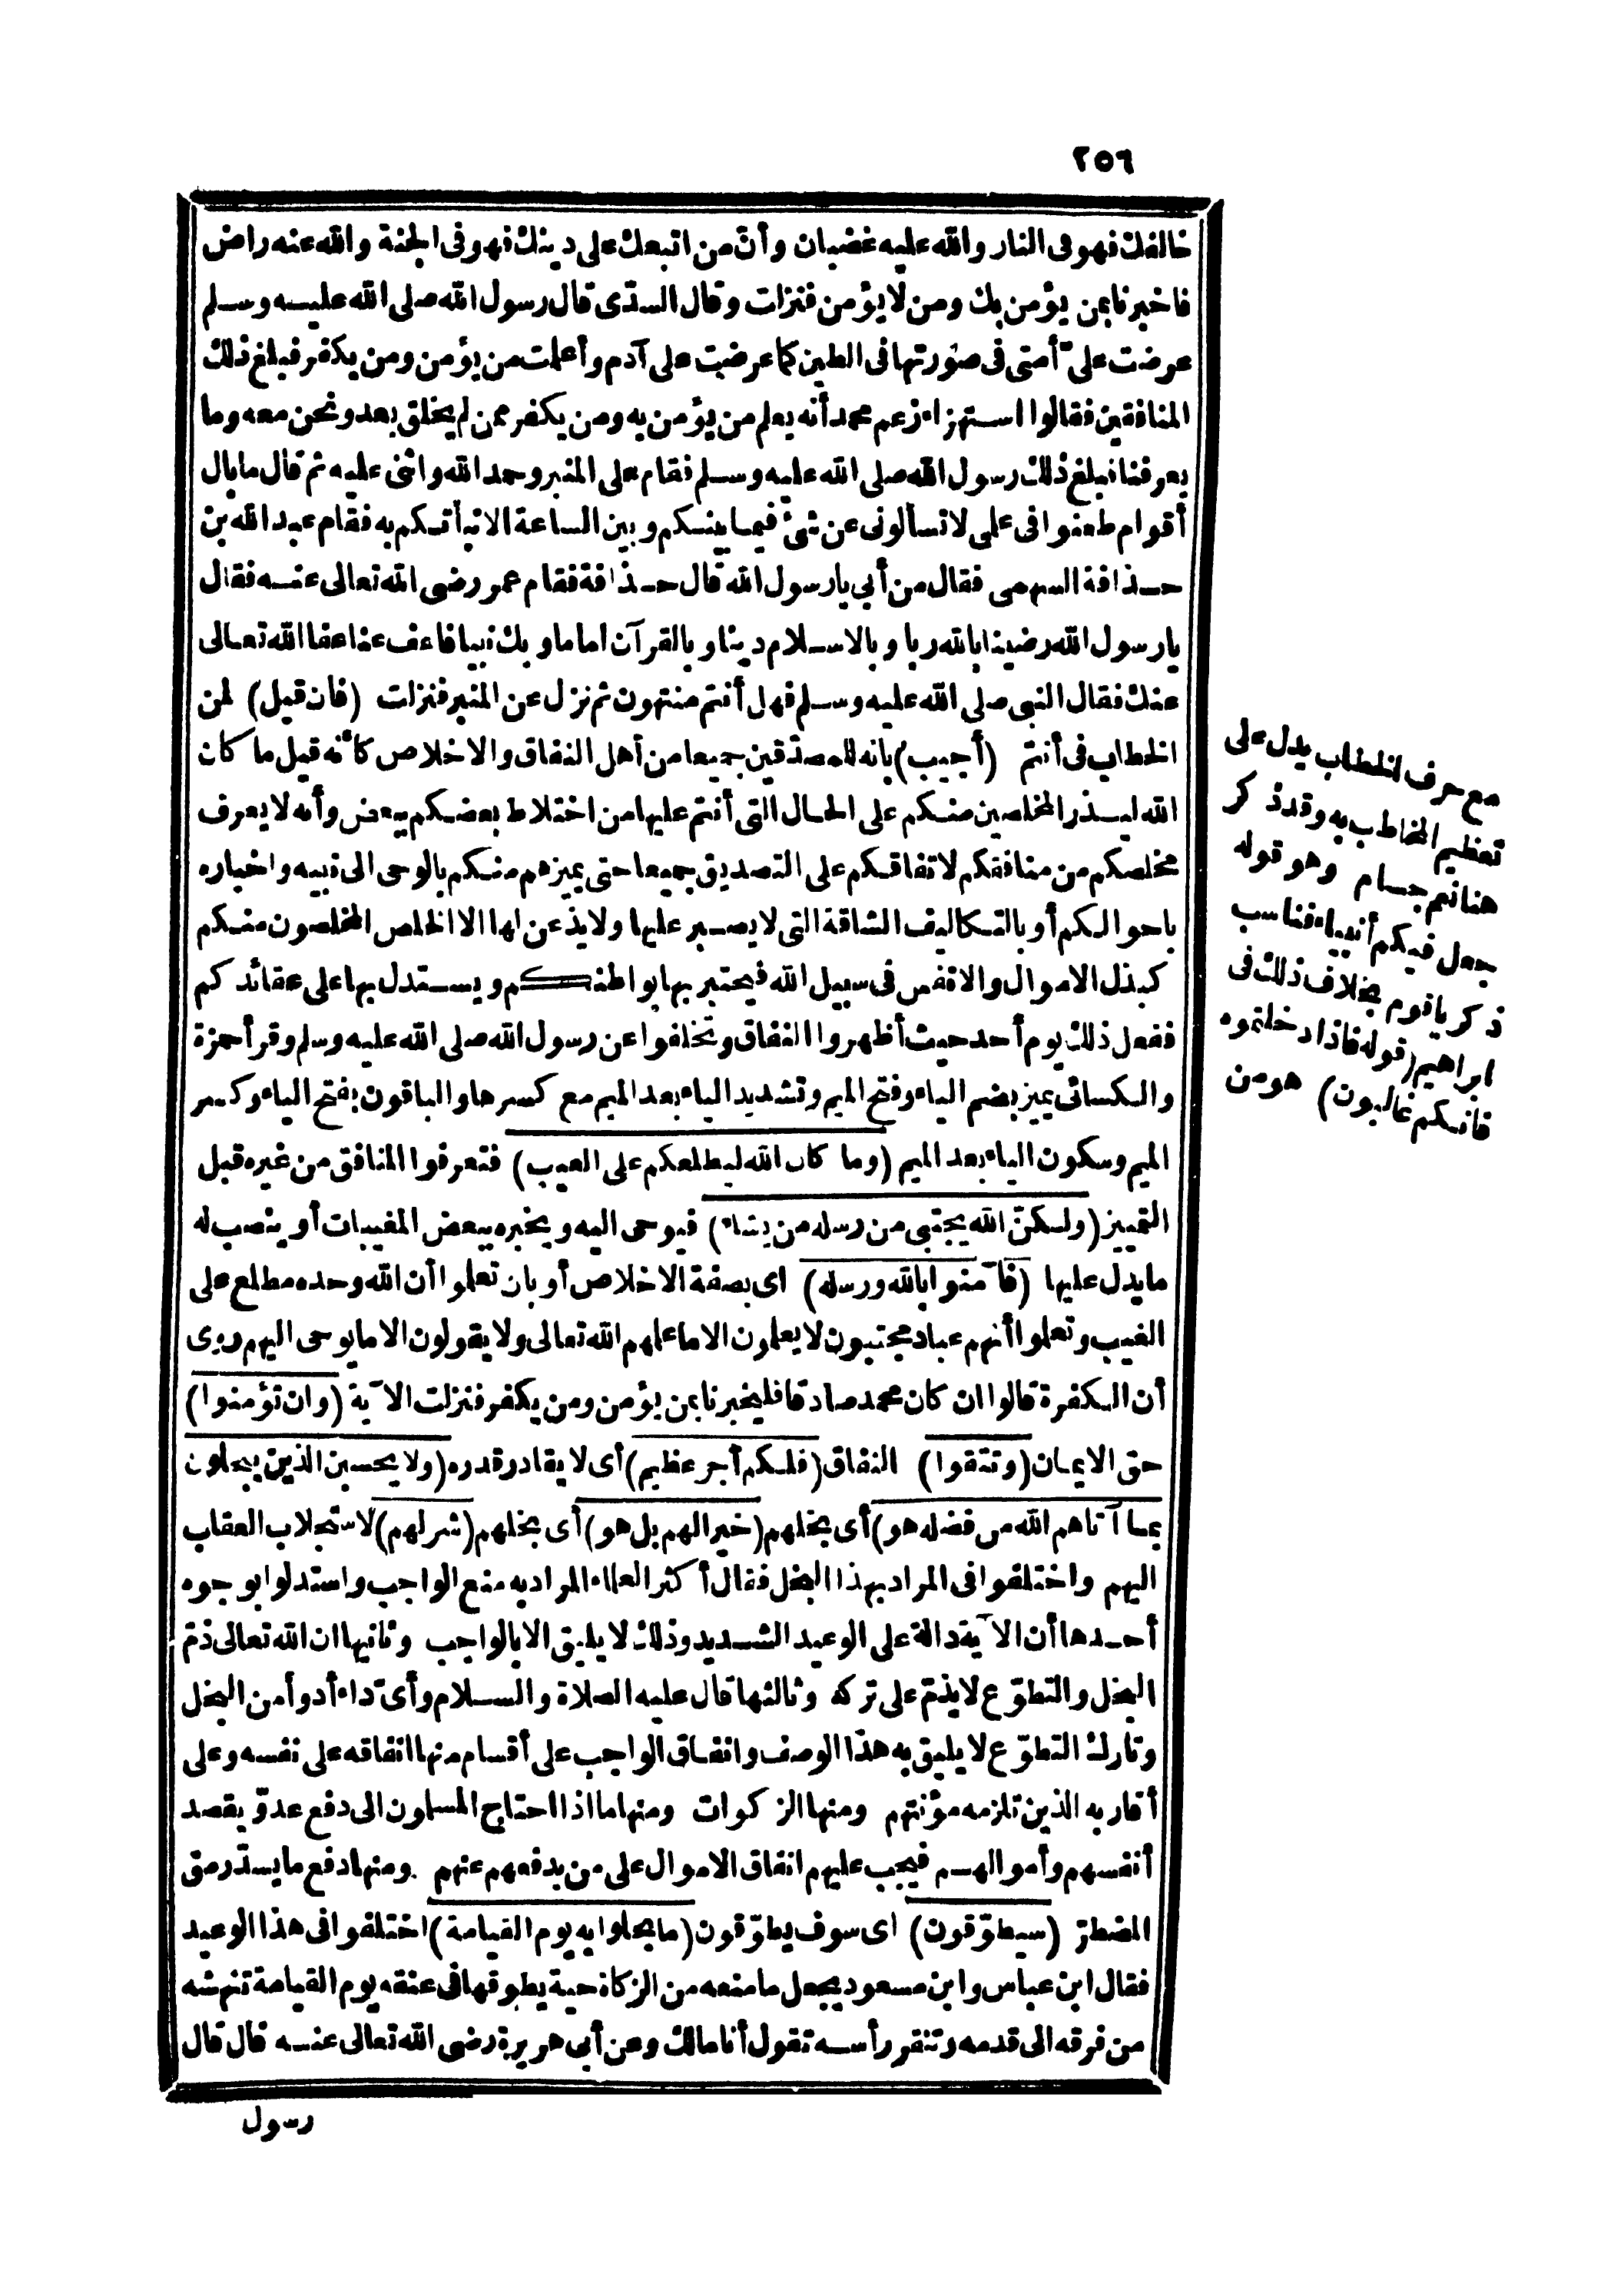 ٢٥٦
خالفك فهو فى النار والله عليه غضبان وأنّ من اتبعك على دينك فهو فى الجنة والله عنه راض
فاخبرنا بمن يؤمن بك ومن لا يؤمن فنزلت وقال السدّى قال رسول الله صلى الله عليه وسلم
عرضت علىّ أمتى فى صورتها فى الطين كما عرضت على آدم وأعلمت من يؤمن ومن يكفر فبلغ ذلك
المنافقين فقالوا استهزاء زعم محمد أنه يعلم من يؤمن به ومن يكفر ممن لم يخلق بعد ونحن معه وما
يعرفنا فبلغ ذلك رسول الله صلى الله عليه وسلم فقام على المنبر وحمد الله واثنى عليه ثم قال ما بال
أقوام طعنوا فى علمى لا تسألونى عن شئ فيما بينكم وبين الساعة الا نبأتكم به فقام عبد الله بن
حذافة السهمى فقال من أبى يا رسول الله قال حذافة فقام عمر رضى الله تعالى عنه فقال
يا رسول الله رضينا بالله ربا وبالاسلام دينا وبالقرآن اماما وبك نبيا فاعف عنا عفا الله تعالى
عنك فقال النبى صلى الله عليه وسلم فهل أنتم منتهون ثم نزل عن المنبر فنزلت (فان قيل) لمن
الخطاب فى أنتم (أجيب) بانه للمصدّقين جميعا من أهل النفاق والاخلاص كأنه قيل ما كان
الله ليذر المخلصين منكم على الحال التى أنتم عليها من اختلاط بعضكم ببعض وأنه لا يعرف
مخلصكم من منافقكم لاتفاقكم على التصديق جميعا حتى يميزهم منكم بالوحى الى نبيه واخباره
باحوالكم أو بالتكاليف الشاقة التى لا يصبر عليها ولا يذعن لها الا الخلص المخلصون منكم
كبذل الاموال والانفس فى سبيل الله فيختبر بها بواطنكم ويستدل بها على عقائدكم
ففعل ذلك يوم أحد حيث أظهروا النفاق وتخلفوا عن رسول الله صلى الله عليه وسلم وقرأ حمزة
والكسائى يميز بضم الياء وفتح الميم وتشديد الياء بعد الميم مع كسرها والباقون بفتح الياء وكسر
الميم وسكون الياء بعد الميم (وما كان الله ليطلعكم على الغيب) فتعرفوا المنافق من غيره قبل
التمييز (ولكنّ الله يجتبى من رسله من يشاء) فيوحى اليه ويخبره ببعض المغيبات أو ينصب له
ما يدل عليها (فآمنوا بالله ورسله) اى بصفة الاخلاص أو بان تعلموا أن الله وحده مطلع على
الغيب وتعلموا أنهم عباد مجتبون لا يعلمون الا ما علمهم الله تعالى ولا يقولون الا ما يوحى اليهم روى
أن الكفرة قالوا ان كان محمد صادقا فليخبرنا بمن يؤمن ومن يكفر فنزلت الآية (وان تؤمنوا)
حق الايمان (وتتقوا) النفاق (فلكم أجر عظيم) أى لا يقادر قدره (ولا يحسبن الذين يبخلون
بما آتاهم الله من فضله هو) أى بخلهم (خيرا لهم بل هو) أى بخلهم (شر لهم) لاستجلاب العقاب
اليهم واختلفوا فى المراد بهذا البخل فقال أكثر العلماء المراد به منع الواجب واستدلوا بوجوه
أحدها أن الآية دالة على الوعيد الشديد وذلك لا يليق الا بالواجب وثانيها ان الله تعالى ذمّ
البخل والتطوّع لا يذمّ على تركه وثالثها قال عليه الصلاة والسلام وأىّ داء أدوأ من البخل
وتارك التطوّع لا يليق به هذا الوصف وانفاق الواجب على أقسام منها انفاقه على نفسه وعلى
أقاربه الذين تلزمه مؤنتهم ومنها الزكوات ومنها ما اذا احتاج المسلمون الى دفع عدوّ يقصد
أنفسهم وأموالهم فيجب عليهم انفاق الاموال على من يدفعهم عنهم ومنها دفع ما يسدّ رمق
المضطرّ (سيطوّقون) اى سوف يطوّقون (ما بخلوا به يوم القيامة) اختلفوا فى هذا الوعيد
فقال ابن عباس وابن مسعود يجعل ما منعه من الزكاة حية يطوقها فى عنقه يوم القيامة تنهشه
من فرقه الى قدمه وتنقر رأسه تقول أنا مالك وعن أبى هريرة رضى الله تعالى عنه قال قال
رسول
مع حرف الخطاب يدل على
تعظيم المخاطب به وقد ذكر
هنا نعم جسام وهو قوله
جعل فيكم أنبياء فناسب
ذكر يا قوم بخلاف ذلك فى
ابراهيم (قوله فاذا دخلتموه
فانكم غالبون) هو من